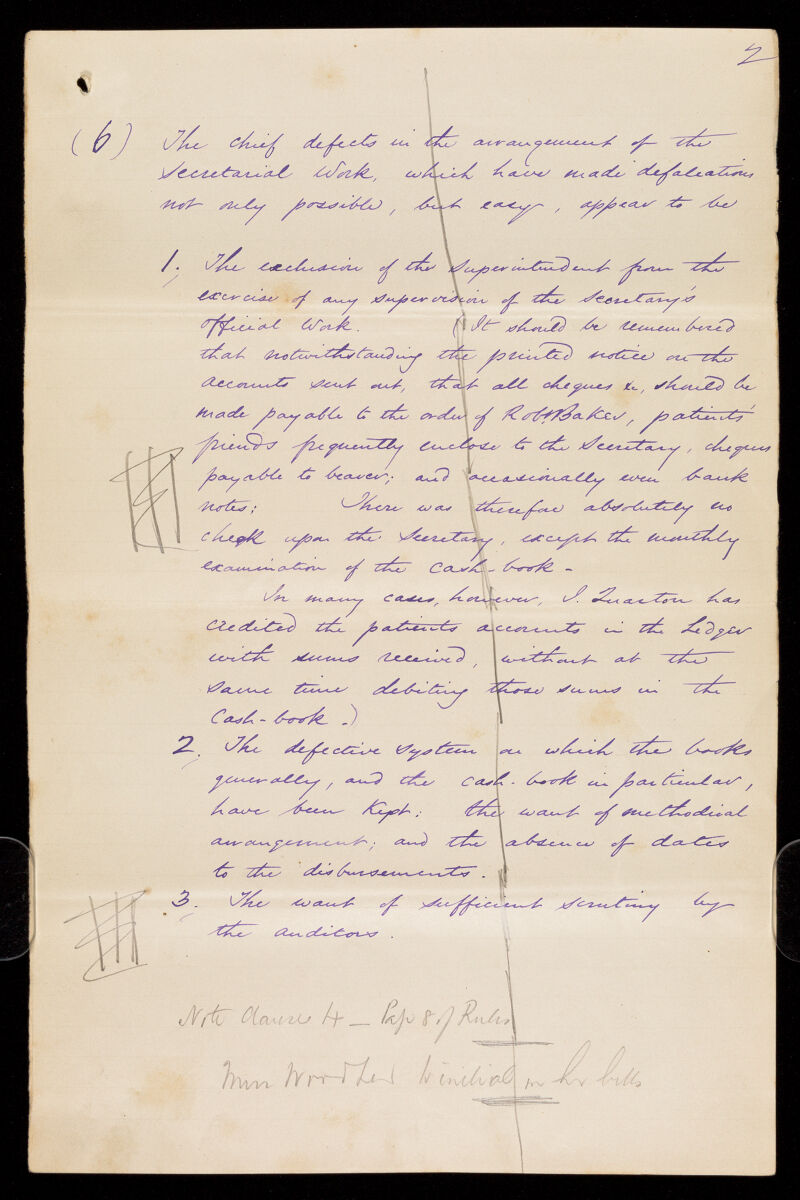 2
(6) The chief defects in the arrangement of the
Secretarial Work, which have made defalcations
not only possible, but easy, appear to be
1. The exclusion of the Superintendent from the
exercise of any supervision of the Secretary's
official Work. (It should be remembered
that notwithstanding the printed notice on the
accounts sent out, that all cheques &c, should be
made payable to the order of Robt Baker, patients'
friends frequently enclose to the Secretary, cheques
payable to bearer; and occasionally even bank
notes: There was therefore absolutely no
check upon the Secretary, except the monthly
examination of the cash-book -
In many cases, however, J. Quarton has
credited the patients accounts in the Ledger
with sums received, without at the
same time debiting those sums in the
Cash-book.)
2. The defective system on which the books
generally, and the cash-book in particular,
have been kept: the want of methodical
arrangement; and the absence of dates
to the disbursements.
3. The want of sufficient scrutiny by
the auditors.
Note Clause 4 — Page 8 of Rules
Miss Woodhead to initial her bills